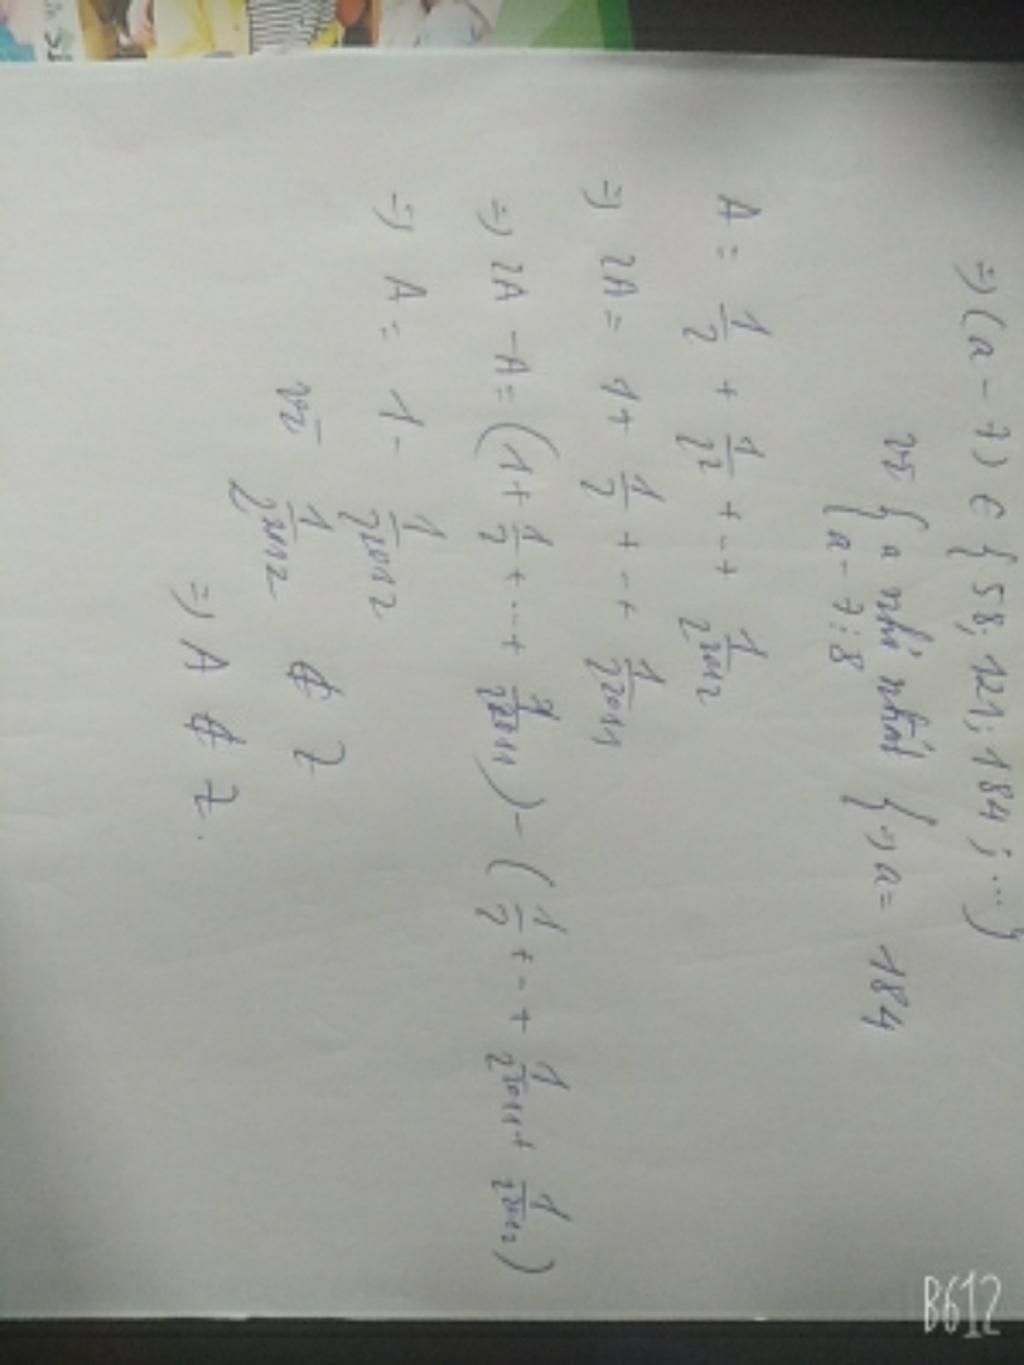 => (a - 7) ∈ {58; 121; 184; ...}
vì { a nhỏ nhất
{ a - 7 ⋮ 8 } => a = 184
A = 1/2 + 1/2² + ... + 1/2²⁰¹²
=> 2A = 1 + 1/2 + ... + 1/2²⁰¹¹
=> 2A - A = (1 + 1/2 + ... + 1/2²⁰¹¹) - (1/2 + ... + 1/2²⁰¹¹ + 1/2²⁰¹²)
=> A = 1 - 1/2²⁰¹²
vì 1/2²⁰¹² ∉ Z
=> A ∉ Z.
B612